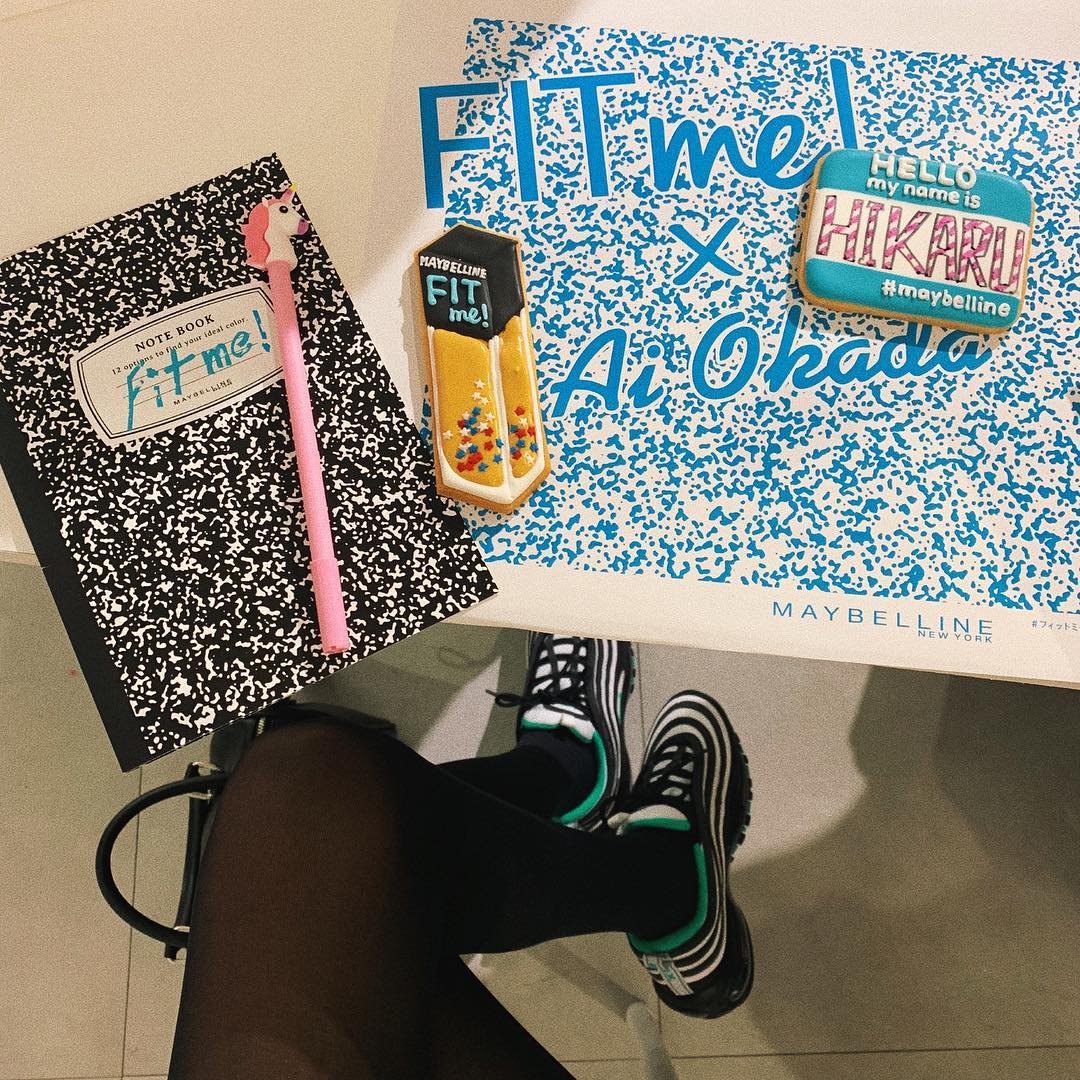 NOTE BOOK
12 options to find your ideal color.
fit me!
MAYBELLINE
MAYBELLINE
FIT
me!
FIT me!
x
Ai Okada
HELLO
my name is
HIKARU
#maybelline
MAYBELLINE
NEW YORK
#フィットミー